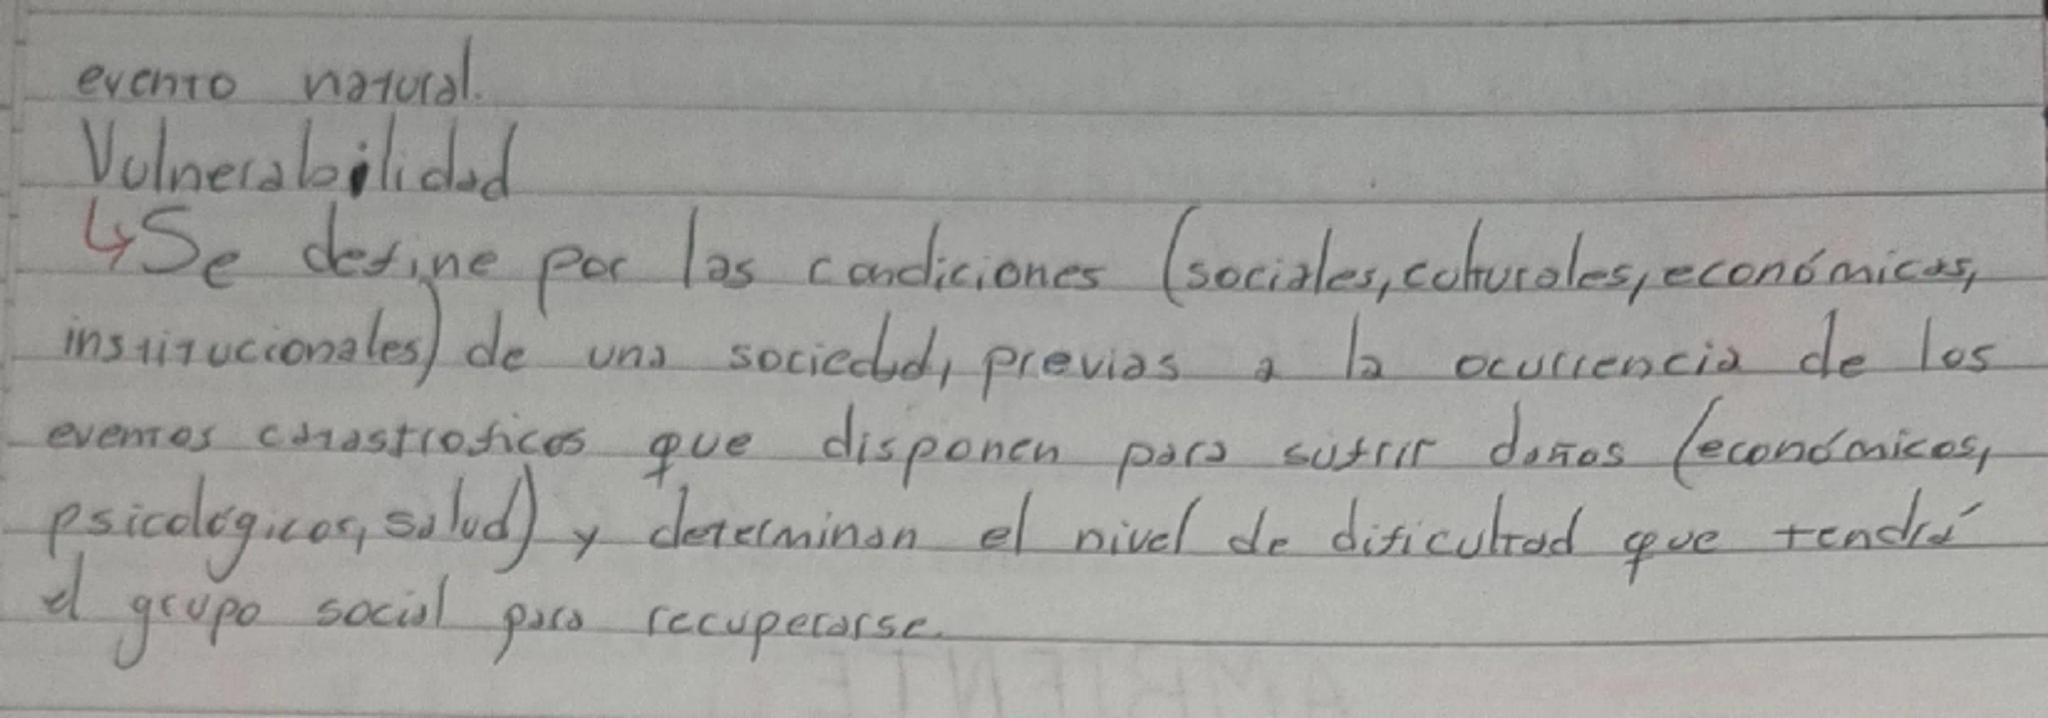 evento natural.
Vulnerabilidad
↳Se define por las condiciones (sociales, culturales, económicas,
institucionales) de una sociedad, previas a la ocurrencia de los
eventos catastroficos que disponen para sufrir daños (económicos,
psicológicos, salud) y determinan el nivel de dificultad que tendrá
el grupo social para recuperarse.